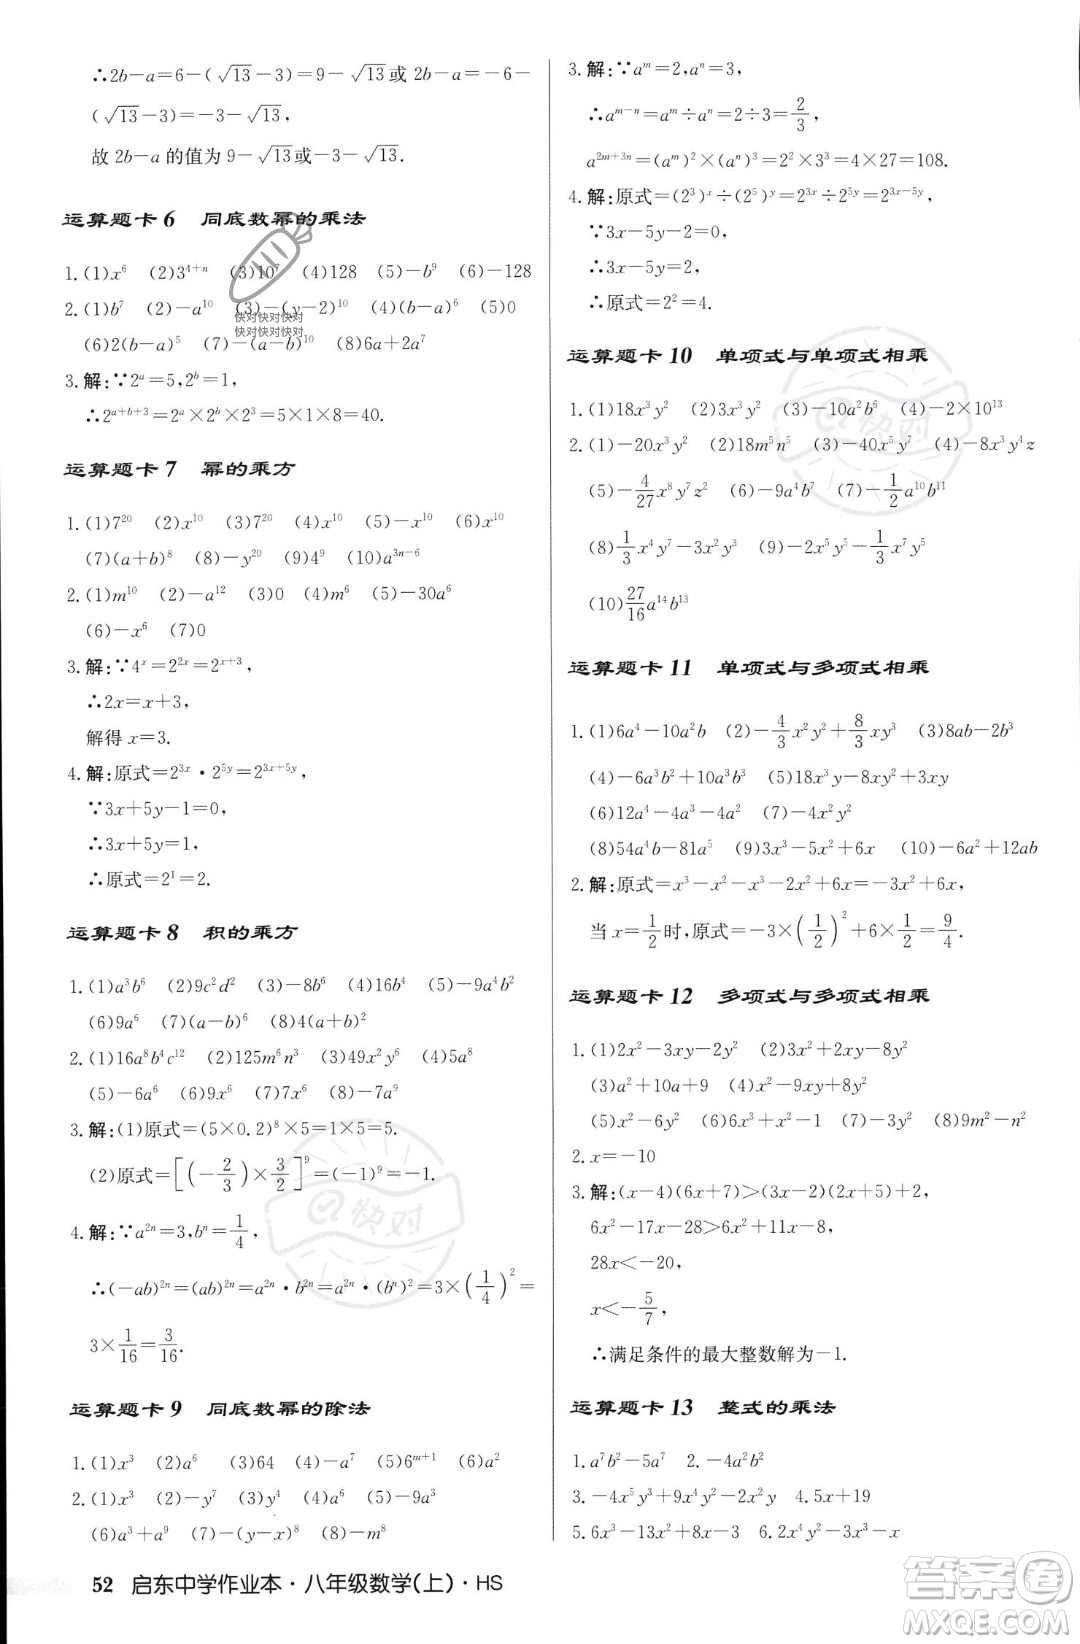 ∴2b-a=6-(√13-3)=9-√13或 2b-a=-6-
(√13-3)=-3-√13,
故 2b-a 的值为 9-√13或-3-√13.
运算题卡 6 同底数幂的乘法
1.(1)x⁶ (2)3⁴⁺ⁿ (3)10⁷ (4)128 (5)-b⁹ (6)-128
2.(1)b⁷ (2)-a¹⁰ (3)-(y-2)¹⁰ (4)(b-a)⁶ (5)0
快对快对快对
快对快对快对
(6)2(b-a)⁵ (7)-(a-b)¹⁰ (8)6a+2a⁷
3.解:∵2ᵃ=5,2ᵇ=1,
∴2ᵃ⁺ᵇ⁺³=2ᵃ×2ᵇ×2³=5×1×8=40.
运算题卡 7 幂的乘方
1.(1)7²⁰ (2)x¹⁰ (3)7²⁰ (4)x¹⁰ (5)-x¹⁰ (6)x¹⁰
(7)(a+b)⁸ (8)-y²⁰ (9)4⁹ (10)a³ⁿ⁻⁶
2.(1)m¹⁰ (2)-a¹² (3)0 (4)m⁶ (5)-30a⁶
(6)-x⁶ (7)0
3.解:∵4ˣ=2²ˣ=2ˣ⁺³,
∴2x=x+3,
解得 x=3.
4.解:原式=2³ˣ·2⁵ʸ=2³ˣ⁺⁵ʸ,
∵3x+5y-1=0,
∴3x+5y=1,
∴原式=2¹=2.
运算题卡 8 积的乘方
1.(1)a³b⁶ (2)9c²d² (3)-8b⁶ (4)16b⁴ (5)-a⁴b⁶
(6)9a⁶ (7)(a-b)⁶ (8)4(a+b)²
2.(1)16a⁸b⁴c¹² (2)125m⁶n³ (3)49x²y² (4)5a⁸
(5)-6a⁶ (6)9x⁶ (7)7a⁶ (8)-7a⁹
3.解:(1)原式=(5×0.2)⁸×5=1×5=5.
(2)原式=[(-2/3)×3/2]⁹=(-1)⁹=-1.
4.解:∵a²ⁿ=3,bⁿ=1/4,
∴(-ab)²ⁿ=(ab)²ⁿ=a²ⁿ·b²ⁿ=a²ⁿ·(bⁿ)²=3×(1/4)²=
3×1/16=3/16.
运算题卡 9 同底数幂的除法
1.(1)x³ (2)a⁶ (3)64 (4)-a⁷ (5)6ᵐ⁺¹ (6)a²
2.(1)x³ (2)-y⁷ (3)y⁴ (4)x³ (5)-9a³
(6)a³+a⁹ (7)-(x-y)⁸ (8)-m⁸
52 启东中学作业本·八年级数学(上)·HS
3.解:∵aᵐ=2,aⁿ=3,
∴aᵐ⁻ⁿ=aᵐ÷aⁿ=2÷3=2/3,
a²ᵐ⁺³ⁿ=(aᵐ)²×(aⁿ)³=2²×3³=4×27=108.
4.解:原式=(2³)ˣ÷(2⁵)ʸ=2³ˣ÷2⁵ʸ=2³ˣ⁻⁵ʸ,
∵3x-5y-2=0,
∴3x-5y=2,
∴原式=2²=4.
运算题卡 10 单项式与单项式相乘
1.(1)18x³y² (2)3x³y² (3)-10a²b⁶ (4)-2×10¹³
2.(1)-20x³y² (2)18m⁵n⁵ (3)-40a⁷b⁴ (4)-8x³y⁴z
(5)-4/27x⁸y⁷z² (6)-9a⁴b⁷ (7)-1/2a¹⁰b¹¹
(8)1/3x⁴y⁷-x³y⁴ (9)-2x⁵y⁵-1/3x⁷y⁵
(10)27/16a¹⁴b¹³
运算题卡 11 单项式与多项式相乘
1.(1)6a⁴-10a²b (2)-4/3x²y²+8/3xy³ (3)8ab-2b³
(4)-6a³b²+10a³b³ (5)-4x²y-2xy²+3xy
(6)12a⁴-4a³-4a² (7)-2x²y²
(8)54a⁴b-81a⁵ (9)3x³-5x²+6x (10)-6a²+12ab
2.解:原式=x³-x²-x³-2x²+6x=-3x²+6x,
当 x=1/2时,原式=-3×(1/2)²+6×1/2=9/4.
运算题卡 12 多项式与多项式相乘
1.(1)2x²-3xy-2y² (2)3x²+14xy+8y²
(3)a²+10a+9 (4)x²-6xy+8y²
(5)x²-4 (6)x³+x²-x-1 (7)4x² (8)9m²-5n²
2.x=-10
3.解:(x-4)(6x+7)>(3x-2)(2x+5)+2,
6x²-17x-28>6x²+11x-8,
28x<-20,
x<-5/7,
∴满足条件的最大整数解为-1.
运算题卡 13 整式的乘法
1.a⁷b²-5a⁷ 2.-4a²b²
快对
3.-4x⁵y³+9x⁴y⁴-2x²y 4.5x+19
5.6x³-13x²+4x+3 6.2x³-4x²y-2xy²
答案圈
MXQE.COM